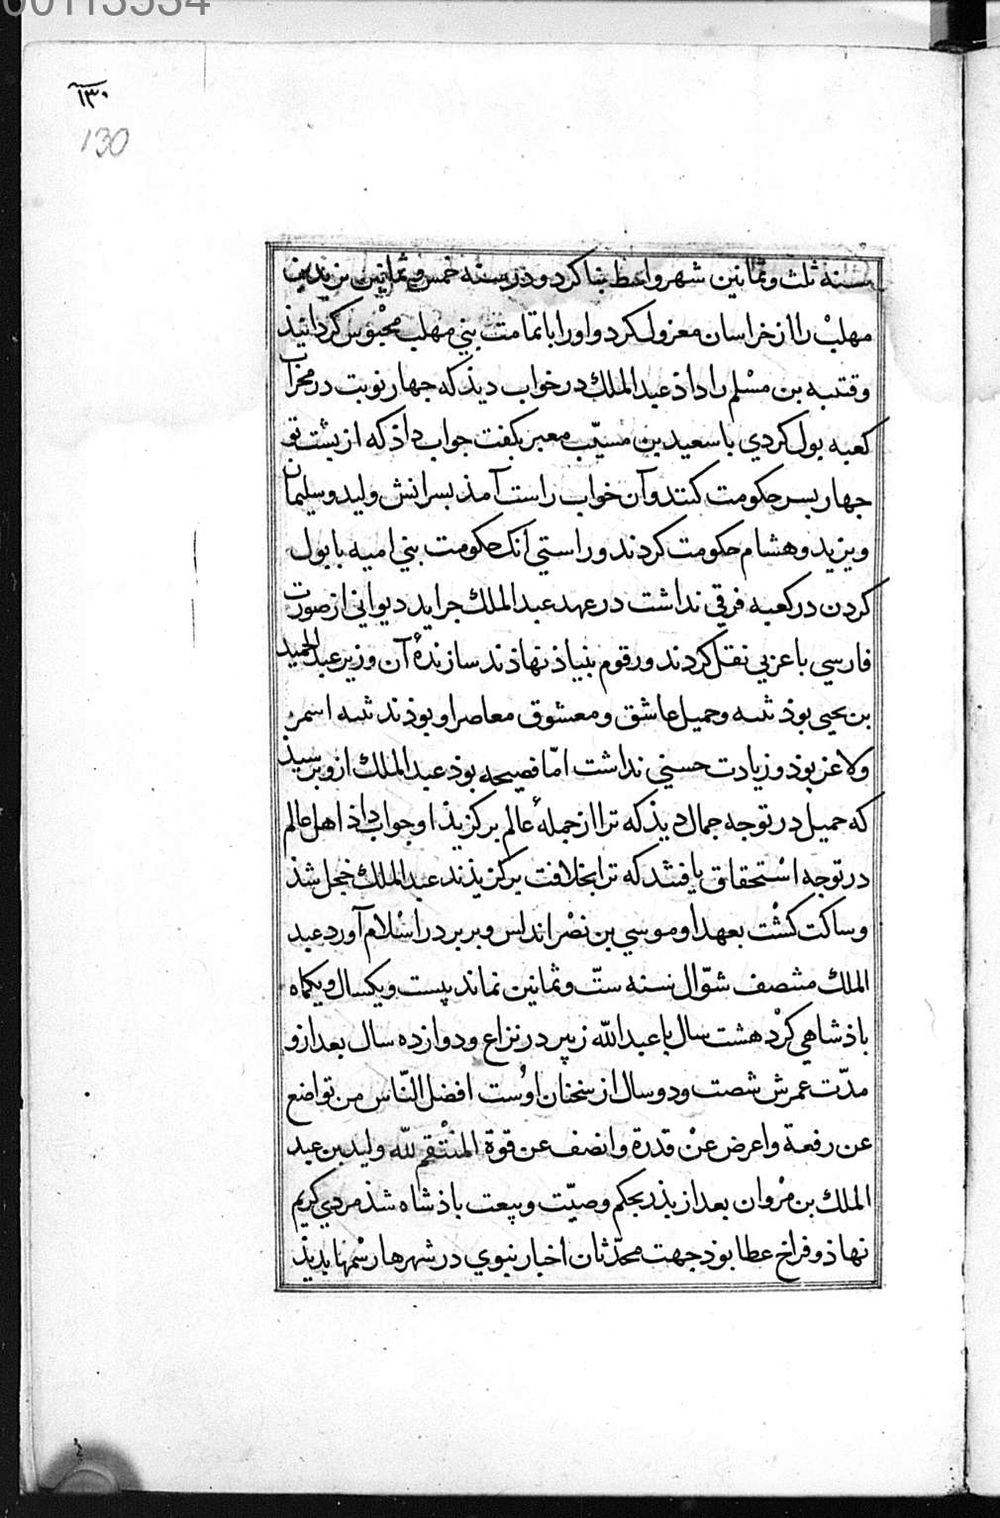 00113534
۱۳۰
130
بسنة ثلث وثمانین شهر واسط بنا کرد و در سنه خمس وثمانین یزید بن
مهلب را از خراسان معزول کرد و او را با تمامت بني مهلب محبوس کردانیذ
وقتیبه بن مسلم را داذ عبد الملك در خواب دیذ که جهار نوبت در محراب
کعبه بول کردي با سعید بن مسیّب معبر بکفت جواب داذ که از بشت تو
جهار بسر حکومت کنند وآن خواب راست آمذ بسرانش ولید و سلیمان
و یزید و هشام حکومت کردند و راستي آنک حکومت بني امیه با بول
کردن در کعبه فرقي نداشت در عهد عبد الملك جراید دیوانی از صورت
فارسي با عربي نقل کردند و رقوم بنیاذ نهاذند سازندهٔ آن وزیر عبد الحمید
بن یحیی بوذ ثبنه وجمیل عاشق و معشوق معاصر او بوذند ثبنه اسمر
ولاغر بوذ و زیادت حسني نداشت امّا فصیحه بوذ عبد الملك ازو برسیذ
که جمیل در تو جه جمال دیذ که ترا از جملهٔ عالم برکزیذ او جواب داذ اهل عالم
در تو جه استحقاق یافتند که ترا بخلافت برکزیذند عبد الملك خجل شذ
وساکت کشت بعهد او موسي بن نصر اندلس و بربر در اسلام آورد عبد
الملك منتصف شوّال سنه ستّ وثمانین نماند بیست و یکسال و یکماه
باذشاهي کرد هشت سال با عبد الله زبیر در نزاع و دوازده سال بعد ازو
مدّت عمرش شصت و دو سال از سخنان اوست افضل النّاس من تواضع
عن رفعة واعرض عن قدرة وانصف عن قوة المنتقم لله ولید بن عبد
الملك بن مروان بعد از بذر بحکم وصیّت و بیعت باذشاه شذ مردي کریم
نهاذ و فراخ عطا بوذ جهت محدّثان اخبار نبوي در شهرها رسمها بدیذ